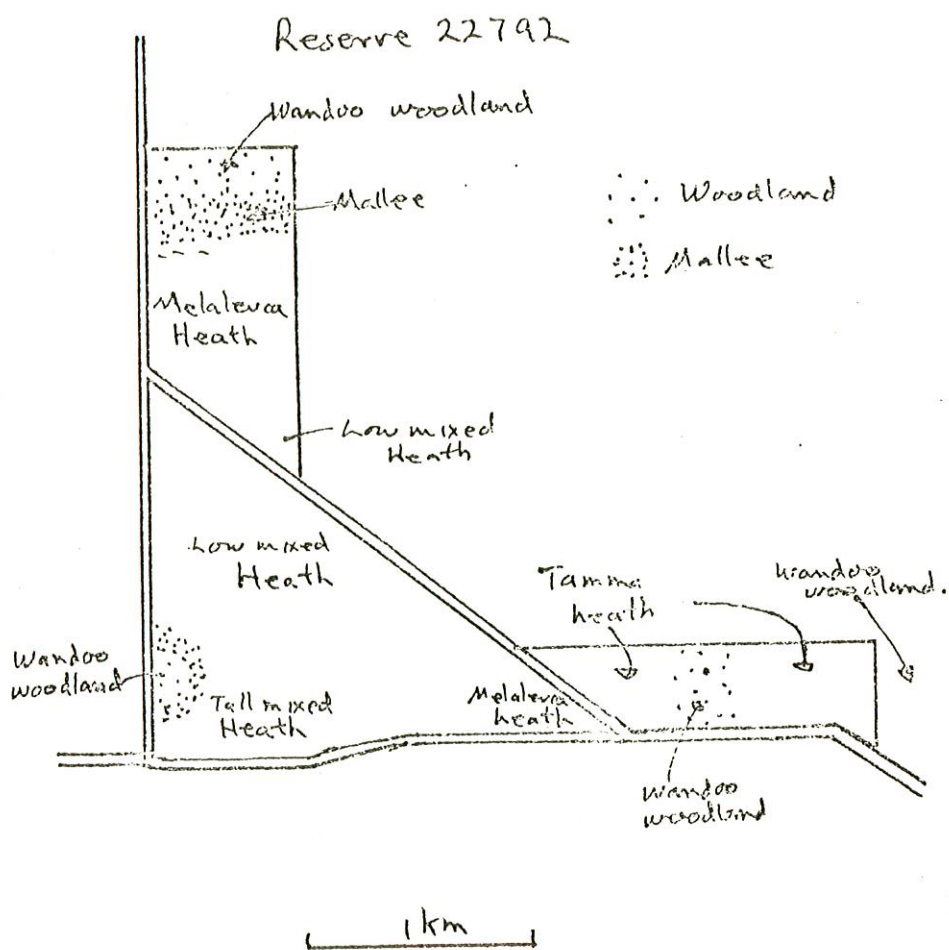 Reserve 22792
Wandoo woodland
Mallee
Woodland
Mallee
Melaleuca
Heath
Low mixed
Heath
Low mixed
Heath
Tamma
heath
Wandoo
woodland.
Wandoo
woodland
Tall mixed
Heath
Melaleuca
heath
Wandoo
woodland
1 km